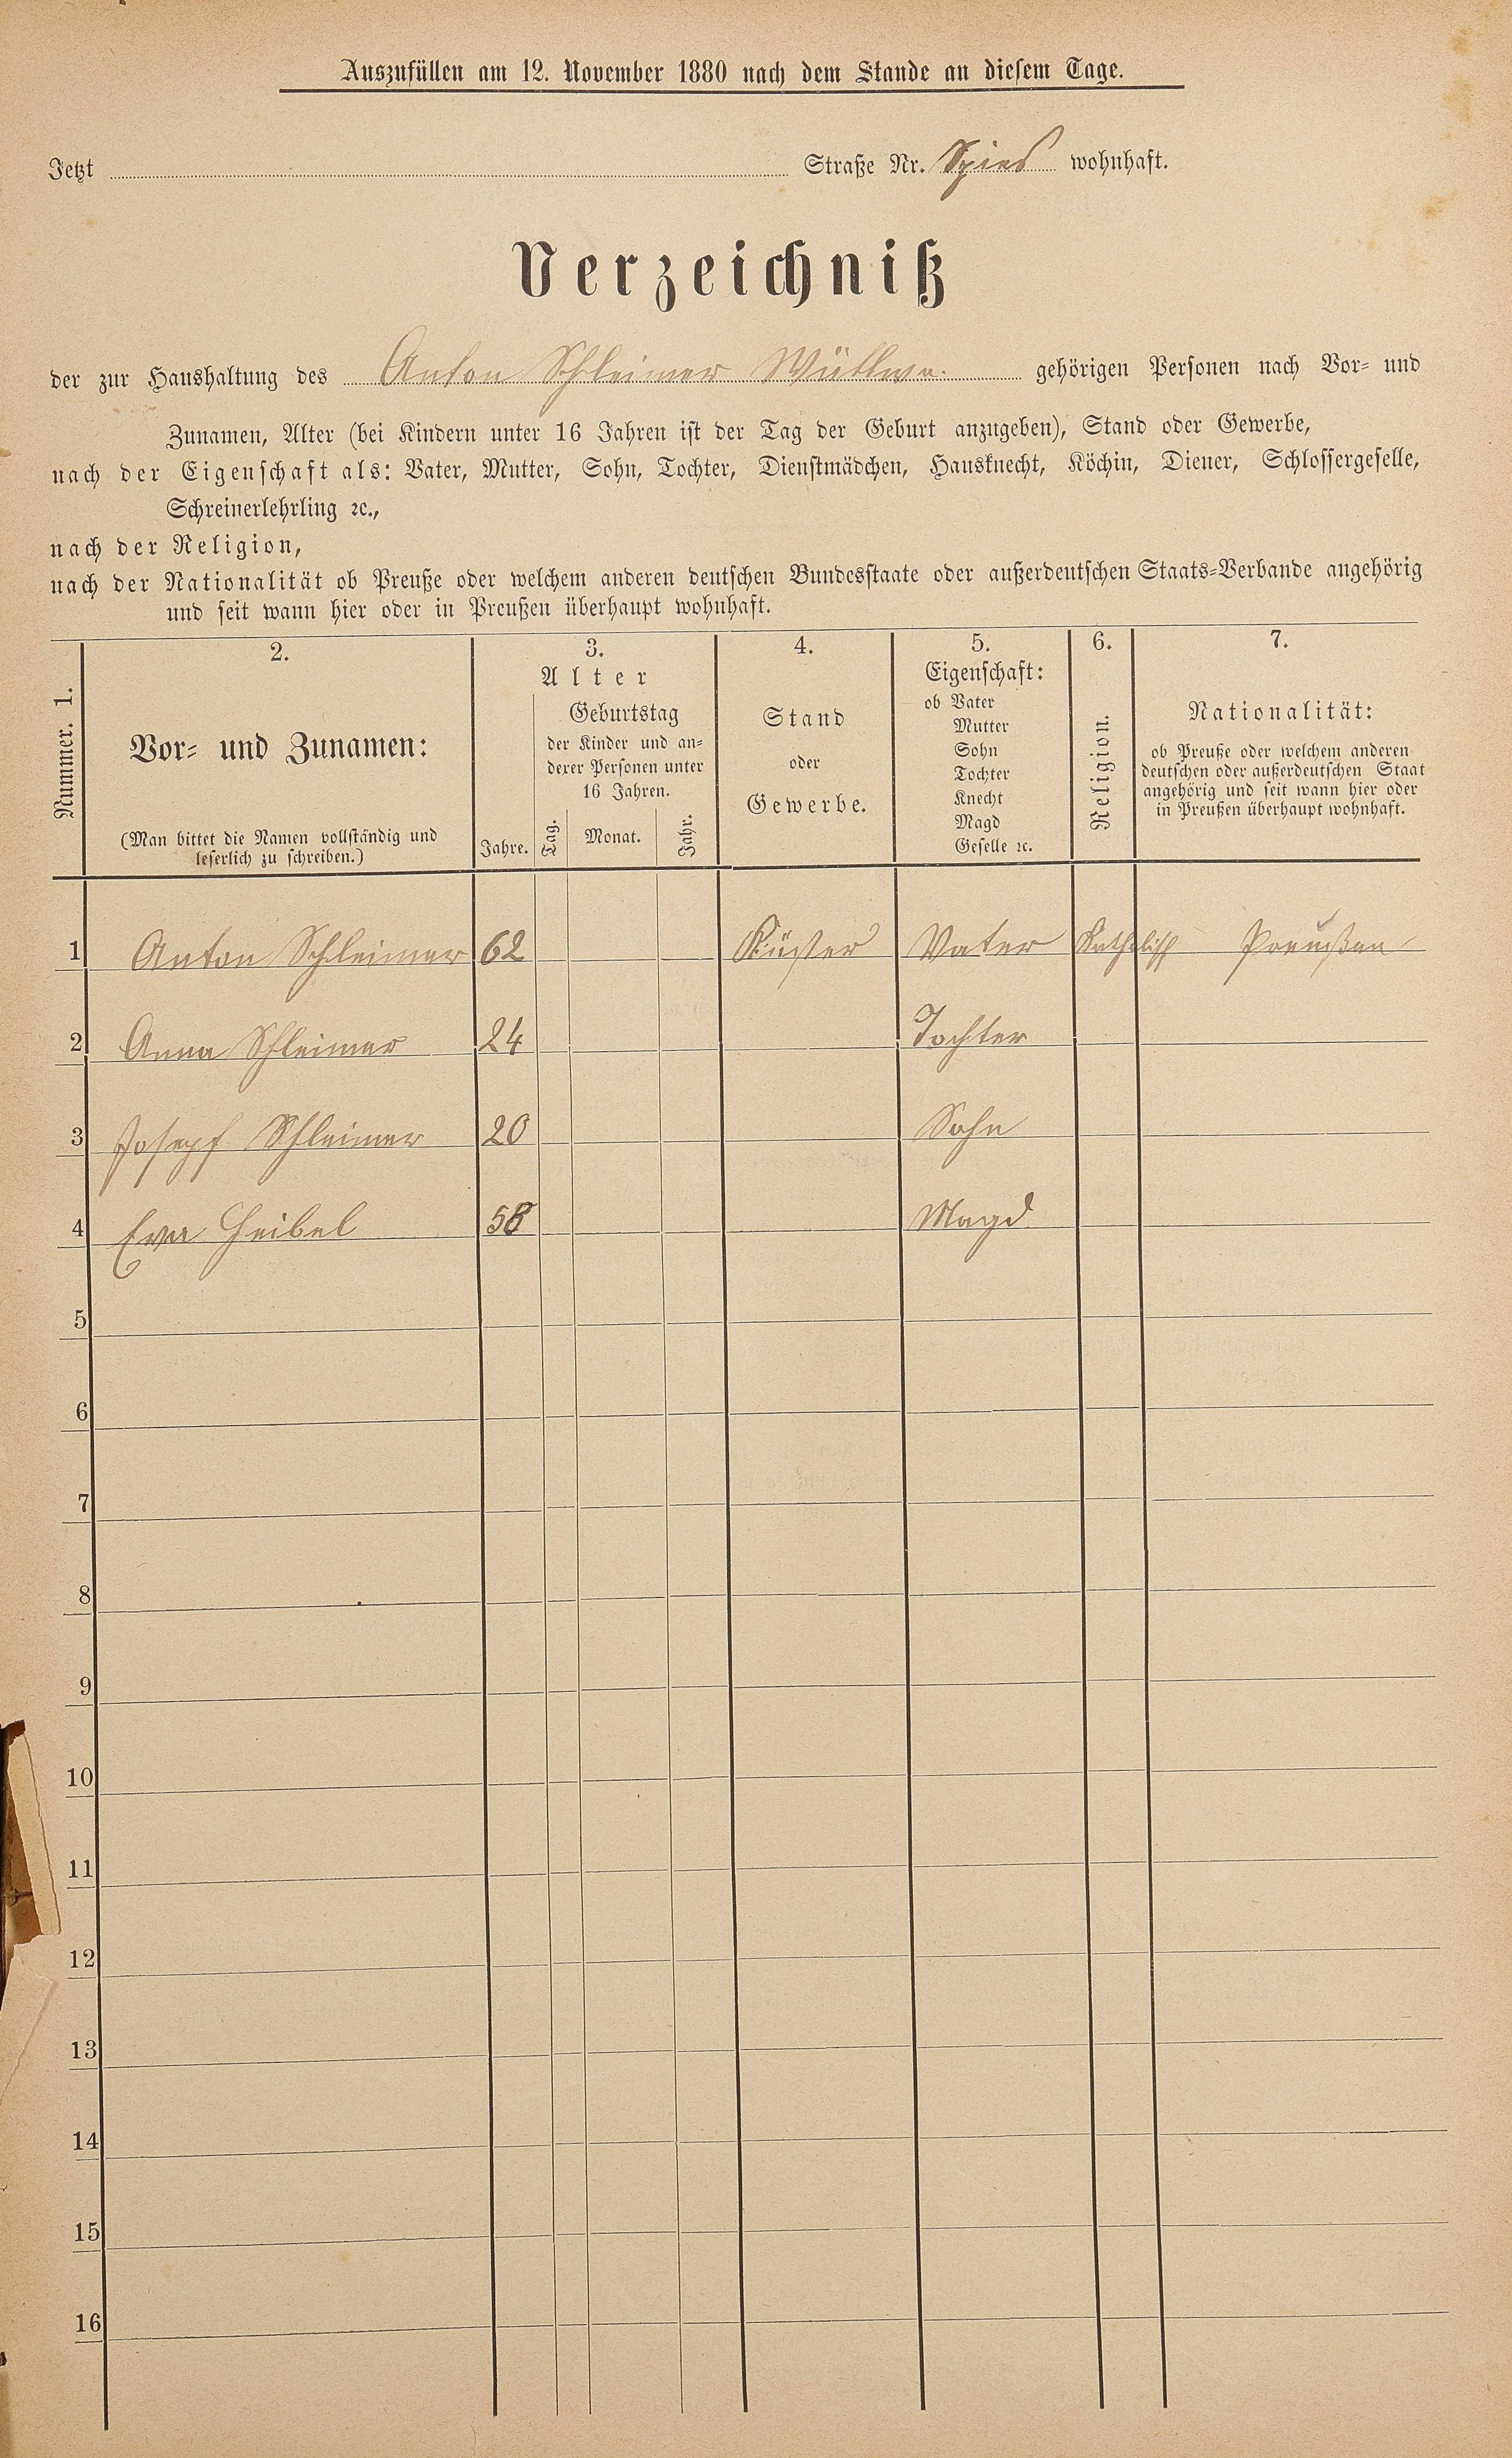 Auszufüllen am 12. November 1880 nach dem Stande an diesem Tage.
Jetzt Straße Nr. Spies wohnhaft.
Verzeichniß
der zur Haushaltung des Anton Schleimer gehörigen Personen nach Vor- und
Zunamen, Alter (bei Kindern unter 16 Jahren ist der Tag der Geburt anzugeben), Stand oder Gewerbe,
nach der Eigenschaft als: Vater, Mutter, Sohn, Tochter, Dienstmädchen, Hausknecht, Köchin, Diener, Schlossergeselle,
Schreinerlehrling ꝛc.,
nach der Religion,
nach der Nationalität ob Preuße oder welchem anderen deutschen Bundesstaate oder außerdeutschen Staats-Verbande angehörig
und seit wann hier oder in Preußen überhaupt wohnhaft.
Nummer. 1.
2.
Vor- und Zunamen:
(Man bittet die Namen vollständig und
leserlich zu schreiben.)
3.
Alter
Jahre.
Geburtstag
der Kinder und an-
derer Personen unter
16 Jahren.
Tag.
Monat.
Jahr.
4.
Stand
oder
Gewerbe.
5.
Eigenschaft:
ob Vater
Mutter
Sohn
Tochter
Knecht
Magd
Geselle ꝛc.
6.
Religion.
7.
Nationalität:
ob Preuße oder welchem anderen
deutschen oder außerdeutschen Staat
angehörig und seit wann hier oder
in Preußen überhaupt wohnhaft.
1 Anton Schleimer 62 Küster Vater Katholisch Preußen
2 Anna Schleimer 24 Tochter
3 Josepf Schleimer 20 Sohn
4 Eva Heibel 58 Magd
5
6
7
8
9
10
11
12
13
14
15
16